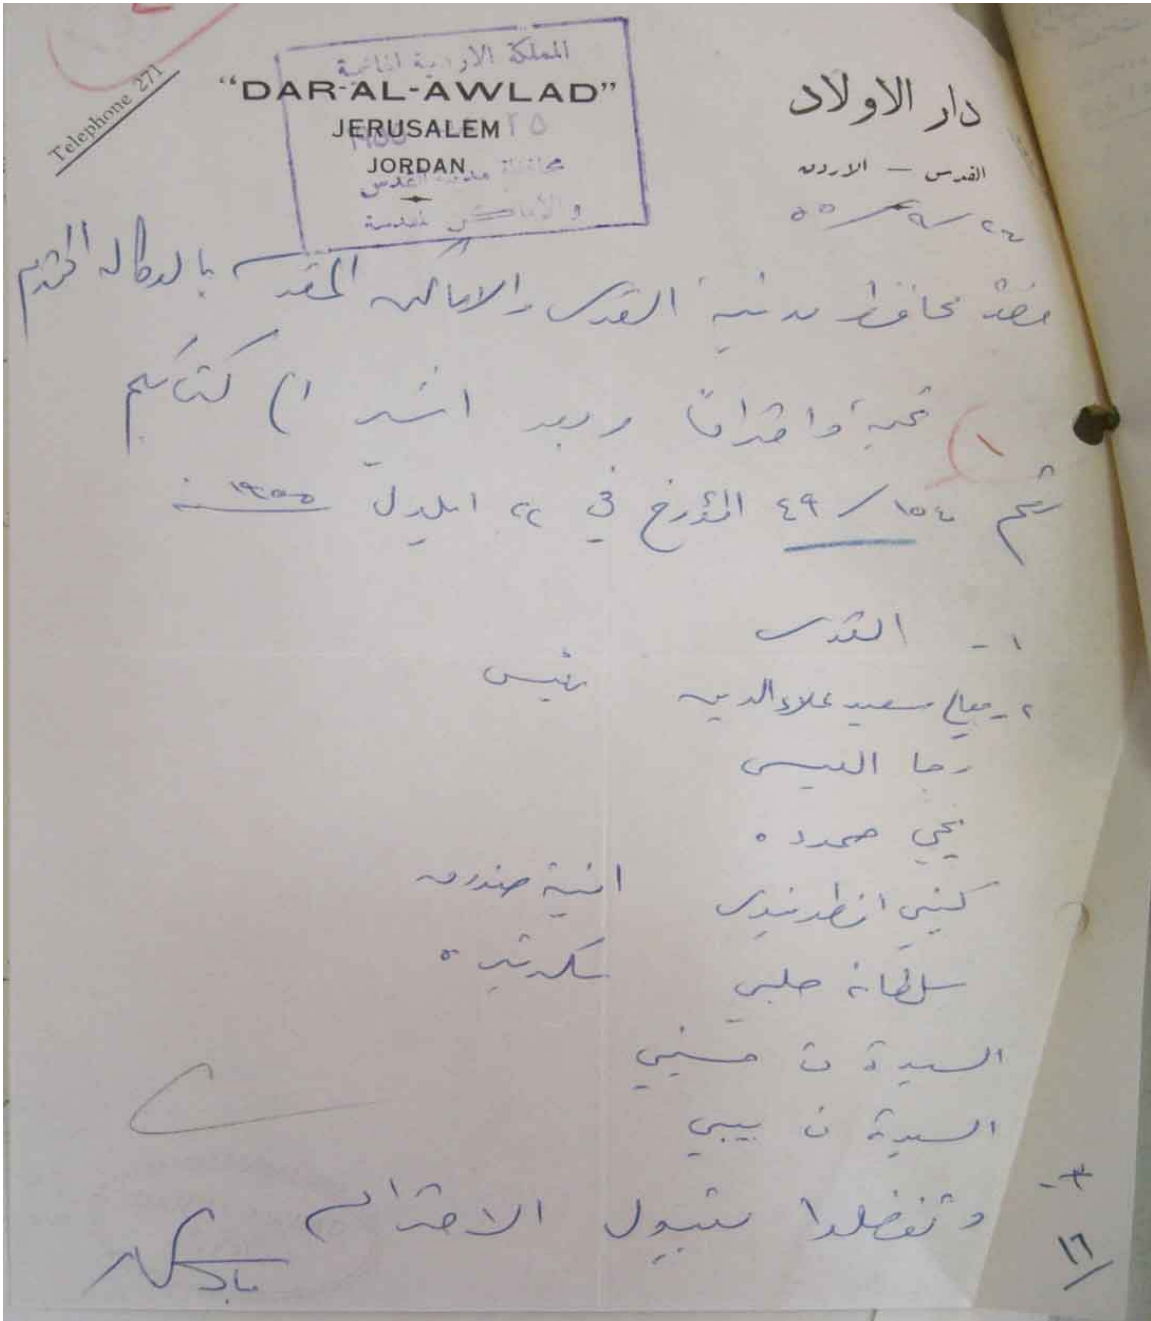 Telephone 271
"DAR-AL-AWLAD"
JERUSALEM
JORDAN
دار الاولاد
القدس — الاردن
المملكة الاردنية الهاشمية
٢٥
محافظة مدينة القدس
والأماكن المقدسة
٢٤/٩/٥٥
محافظ مدينة القدس والاماكن المقدسه بالوكاله المحترم
تحية واحتراما وبعد اشير الى كتابكم
رقم ٤٩/١٥٤ المؤرخ في ٢٢ ايلول ١٩٥٥
١- القدس
٢- سعيد علاء الدين رئيس
رجا العيسى
يحيى حموده
كيتي انطونيوس امينة صندوق
سلطانه حلبي سكرتيره
السيدة ن حسيني
السيدة ن بيبي
٣-
وتفضلوا بقبول الاحترام
١٦